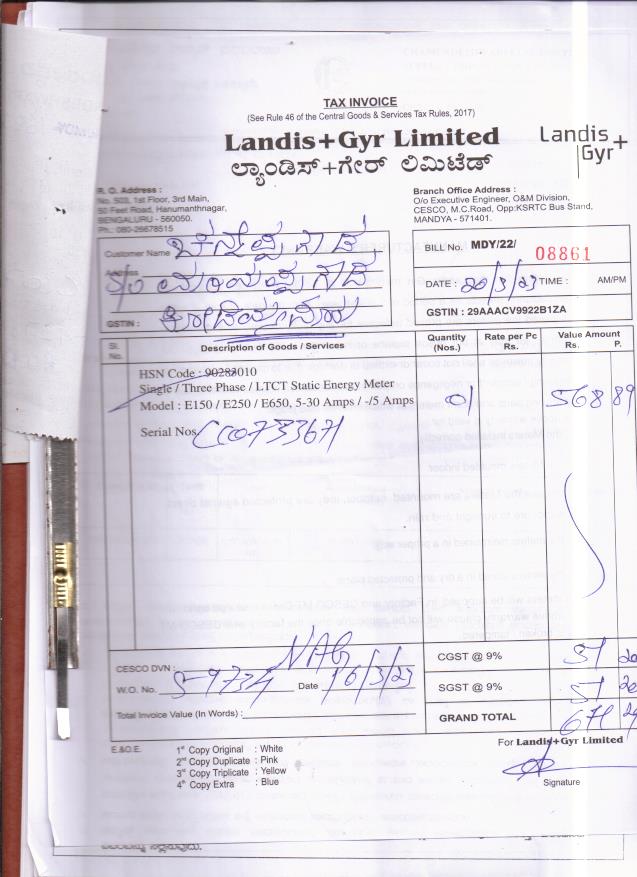 TAX INVOICE
(See Rule 46 of the Central Goods & Services Tax Rules, 2017)
Landis+Gyr Limited
Landis+
Gyr
ಲ್ಯಾಂಡಿಸ್+ಗೇರ್ ಲಿಮಿಟೆಡ್
R. O. Address :
No. 503, 1st Floor, 3rd Main,
50 Feet Road, Hanumanthnagar,
BENGALURU - 560050.
Ph.: 080-26678515
Branch Office Address :
O/o Executive Engineer, O&M Division,
CESCO, M.C.Road, Opp:KSRTC Bus Stand,
MANDYA - 571401.
Customer Name
Address
GSTIN :
BILL No. MDY/22/ 08861
DATE : 20/3/23 TIME : AM/PM
GSTIN : 29AAACV9922B1ZA
Sl. No. Description of Goods / Services Quantity (Nos.) Rate per Pc Rs. Value Amount Rs. P.
HSN Code : 90283010
Single / Three Phase / LTCT Static Energy Meter
Model : E150 / E250 / E650, 5-30 Amps / -/5 Amps 01 568 89
Serial Nos. CC0733671
CESCO DVN : NAG
W.O. No. S-9734 Date 16/3/23
Total Invoice Value (In Words) :
CGST @ 9% 51 20
SGST @ 9% 51 20
GRAND TOTAL 671 29
E.&O.E.
1st Copy Original : White
2nd Copy Duplicate : Pink
3rd Copy Triplicate : Yellow
4th Copy Extra : Blue
For Landis+Gyr Limited
Signature